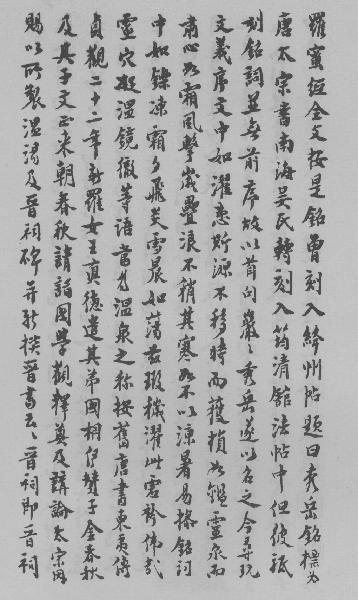 羅蜜恒全文按是銘曾刻入絳州帖題曰秀岳銘標為
唐太宗書南海吳氏轉刻入筠清館法帖中但彼祇
刻銘詞並無前序故以首句巖〻秀岳遂以名之今尋玩
文義序文中如濯患貯源不移時而獲損如鑑靈泉而
肅心如霜風擊巖疊浪不稍其寒如不以涼暑易操銘詞
中如鑠凍霜夕飛炎雪晨如蕩茲瑕穢濯此虛衿偉哉
靈穴凝溫鏡徹等語當是溫泉之稱按舊唐書東夷傳
貞觀二十二年新羅女王真德遣其弟國相伊贊子金春秋
及其子文正來朝春秋請詣國學觀釋奠及講論太宗因
賜以所製溫湯及晉祠碑并新撰晉書云〻晉祠即晉祠